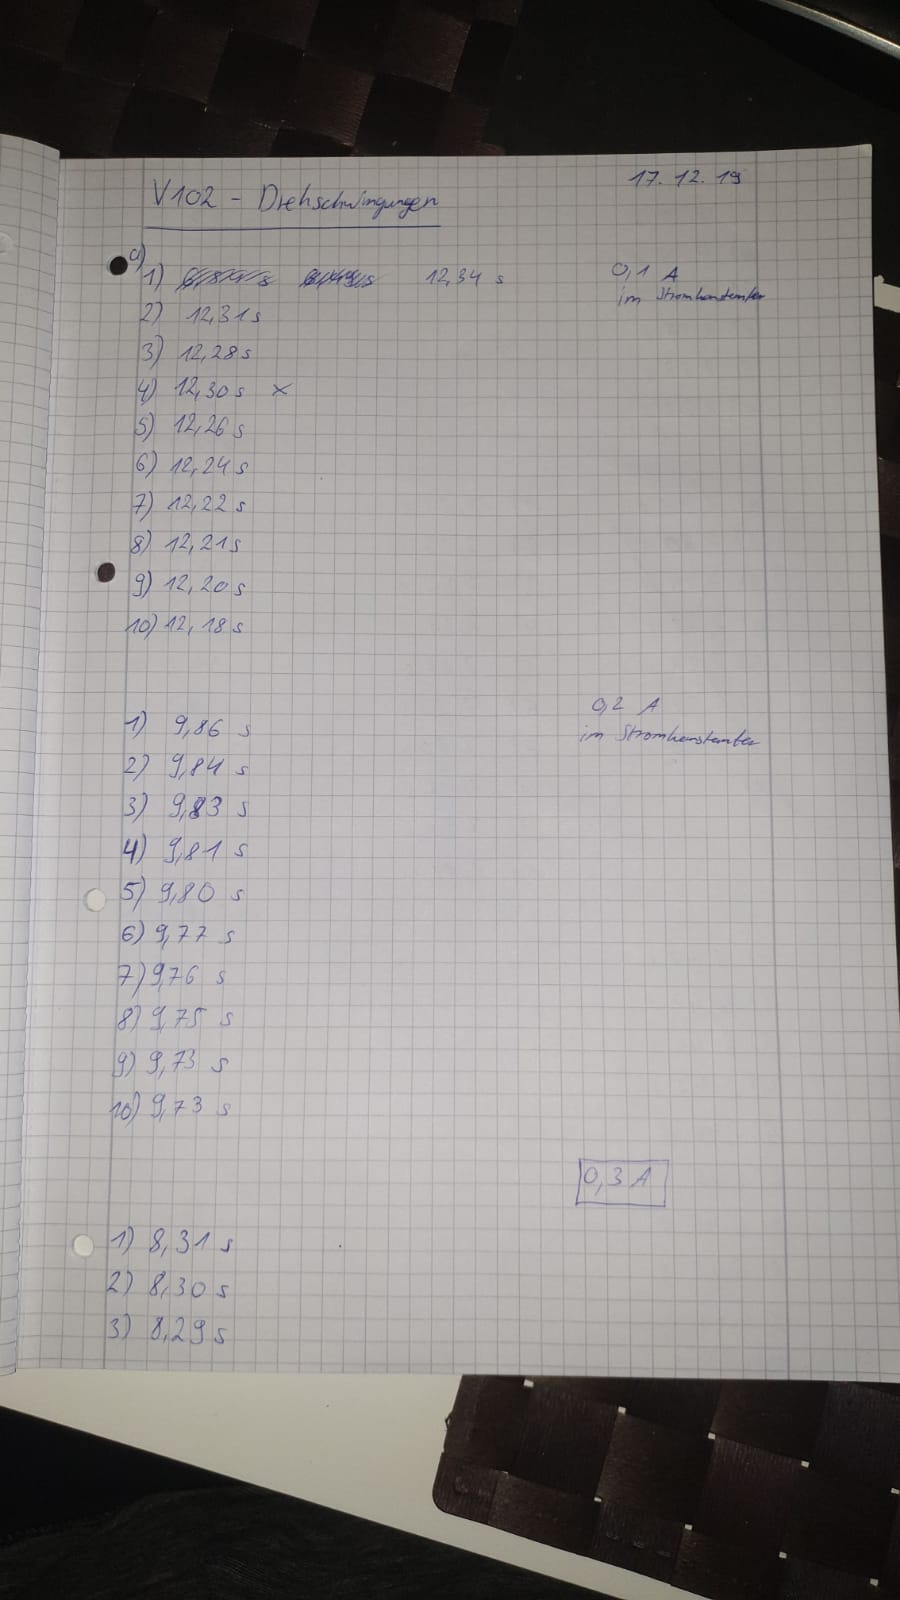 17.12.19
V102 - Drehschwingungen
a)
1) 12,34 s 0,1 A
im Stromkonstanter
2) 12,31 s
3) 12,28 s
4) 12,30 s x
5) 12,26 s
6) 12,24 s
7) 12,22 s
8) 12,21 s
9) 12,20 s
10) 12,18 s
0,2 A
1) 9,86 s im Stromkonstanter
2) 9,84 s
3) 9,83 s
4) 9,81 s
5) 9,80 s
6) 9,77 s
7) 9,76 s
8) 9,75 s
9) 9,73 s
10) 9,73 s
0,3 A
1) 8,31 s
2) 8,30 s
3) 8,29 s